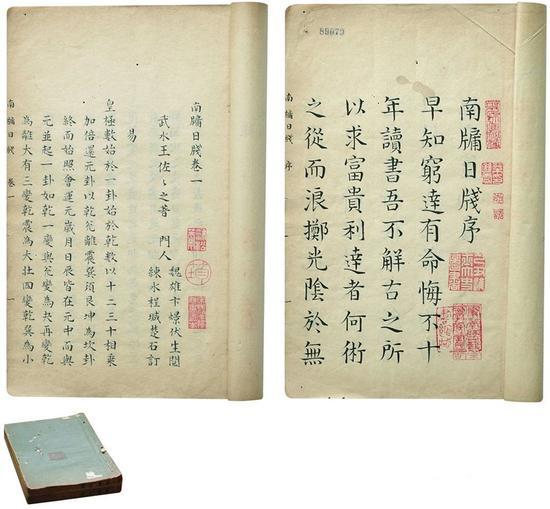 89079
南牖日牋序
早知窮達有命悔不十
年讀書吾不解古之所
以求富貴利達者何術
之從而浪擲光陰於無
南牖日牋 序
南牖日牋卷一
武水王佐之著 門人
魏雄卞㠿伏生閱
練水程瑊楚石訂
易
皇極數始於一卦始於乾數以十二三十相乘
加倍還元卦以乾兊離震巽須艮坤為坎卦
終而始照會運元歲月日辰皆在元中而與
元並起一卦如乾一變與兊變為夬再變乾
為離大有三變乾震為大壯四變乾巽為小
南牖日牋 卷一